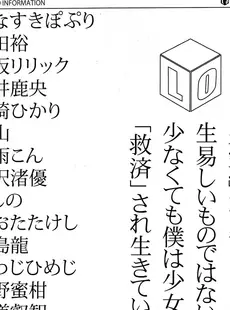 INFORMATION
なすきぽぷり
田裕
坂リリック
井鹿央
崎ひかり
山
雨こん
沢渚優
しの
おたたけし
島龍
わじひめじ
野蜜柑
LO
生易しいものではない
少なくても僕は少女
「救済」され生きてい